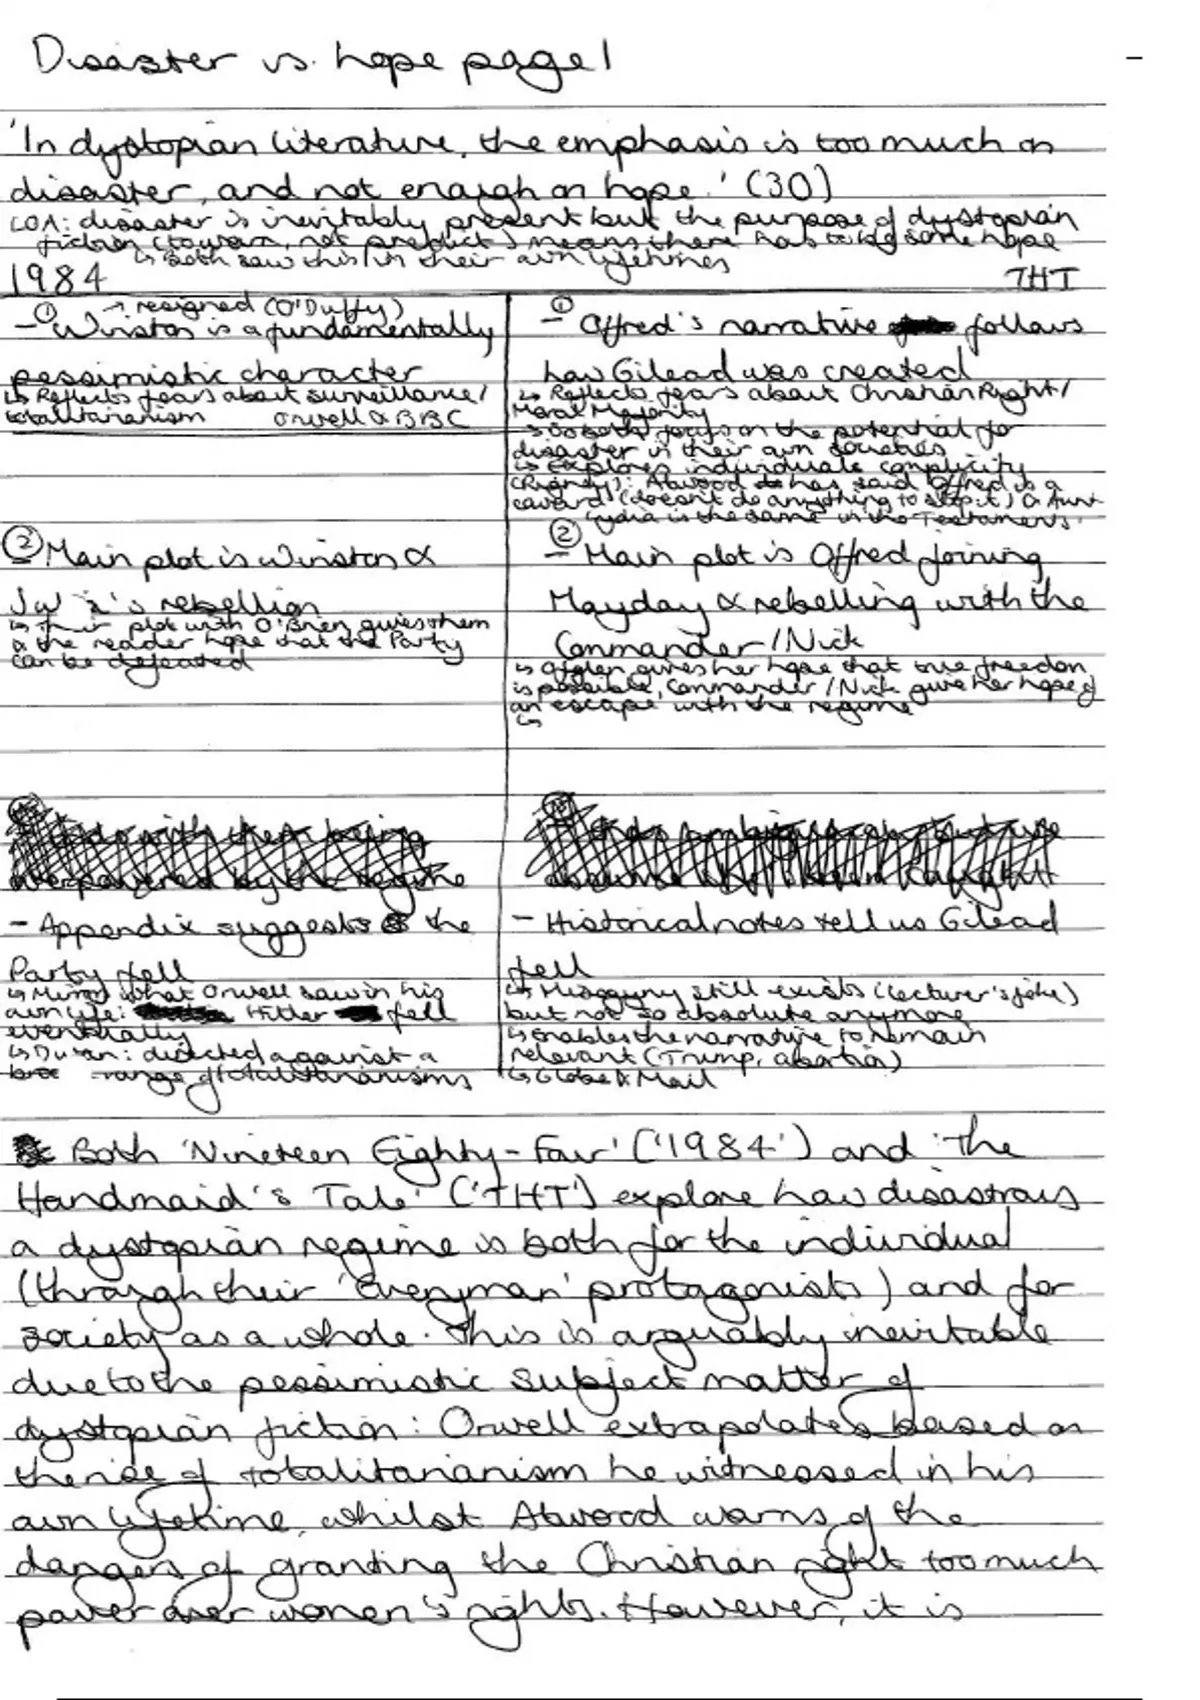 Disaster vs. hope page 1
'In dystopian literature, the emphasis is too much on
disaster, and not enough on hope.' (30)
LOA: disaster is inevitably present but the purpose of dystopian
fiction (to warn, not predict) means there has to be some hope
↳ Both saw this in their own lifetimes
1984
THT
→ resigned (O'Duffy)
① - Winston is a fundamentally
pessimistic character
↳ Reflects fears about surveillance/
totalitarianism Orwell & BBC
② Main plot is Winston &
Julia's rebellion
↳ Their plot with O'Brien gives them
& the reader hope that the Party
can be defeated
- Appendix suggests the
Party fell
↳ Mirrors what Orwell saw in his
own life: Hitler fell
eventually
↳ Dwan: directed against a
range of totalitarianisms
① - Offred's narrative follows
how Gilead was created
↳ Reflects fears about Christian Right/
Moral Majority
↳ So both focus on the potential for
disaster in their own societies
↳ Explores individuals complicity
(Rigney): Atwood has said Offred is a
coward (doesn't do anything to stop it) & Aunt
Lydia is the same in the Testaments.
② - Main plot is Offred joining
Mayday & rebelling with the
Commander/Nick
↳ Ofglen gives her hope that true freedom
is possible, Commander/Nick give her hope of
an escape with the regime
↳
- Historical notes tell us Gilead
fell
↳ Misogyny still exists (lecturer's joke)
but not so absolute anymore
↳ enables the narrative to remain
relevant (Trump, abortion)
↳ Globe & Mail
Both 'Nineteen Eighty-Four' ('1984') and 'The
Handmaid's Tale' ('THT') explore how disastrous
a dystopian regime is both for the individual
(through their 'Everyman' protagonists) and for
society as a whole. This is arguably inevitable
due to the pessimistic subject matter of
dystopian fiction: Orwell extrapolates based on
the rise of totalitarianism he witnessed in his
own lifetime, whilst Atwood warns of the
dangers of granting the Christian right too much
power over women's rights. However, it is